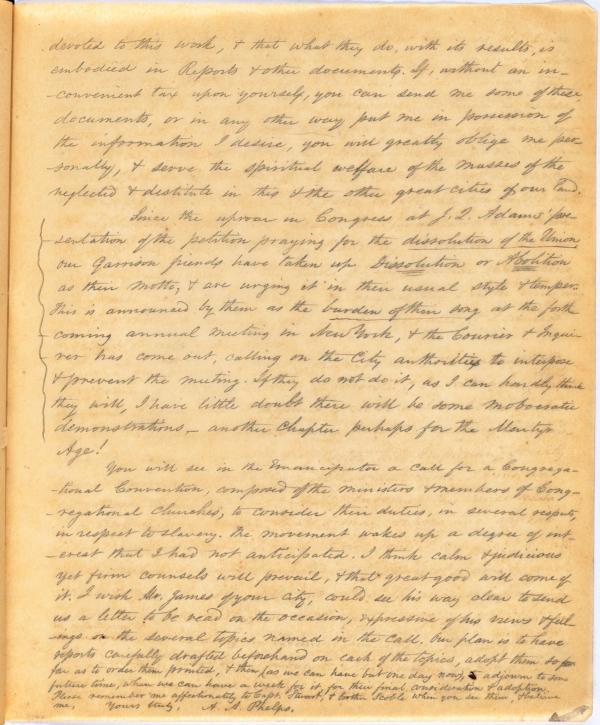 devoted to this work, & that what they do, with its results, is
embodied in Reports & other documents. If, without an in-
-convenient tax upon yourself, you can send me some of these
documents, or in any other way put me in possession of
the information I desire, you will greatly oblige me per-
sonally, & serve the spiritual welfare of the masses of the
neglected & destitute in this & the other great cities of our land.
Since the uproar in Congress at J. Q. Adams' pre-
sentation of the petition praying for the dissolution of the Union
our Garrison friends have taken up Dissolution or Abolition
as their motto, & are urging it in their usual style & temper.
This is announced by them as the burden of their song at the forth
coming annual meeting in New York, & the Courier & Enqui-
rer has come out, calling on the City authorities to interpose
& prevent the meeting. If they do not do it, as I can hardly think
they will, I have little doubt there will be some mobocratic
demonstrations – another Chapter perhaps for the Martyr
Age!
You will see in the Emancipator a call for a Congrega-
-tional Convention, composed of the ministers & members of Cong-
-regational Churches, to consider their duties, in several respects,
in respect to slavery. The movement wakes up a degree of int-
-erest that I had not anticipated. I think calm & judicious
yet firm counsels will prevail, & that great good will come of
it. I wish Mr. James of your City, could see his way clear to send
us a letter to be read on the occasion, expressive of his views & feel-
ings on the several topics named in the call. Our plan is to have
reports carefully drafted beforehand on each of the topics, adopt them so far
far as to order them printed, & then (as we can have but one day now) adjourn to some
future time, when we can have a week for it, for their final consideration & adoption.
Please remember me affectionately to Capt. Stuart, & brother Scoble when you see them, & believe
me, Yours truly, A. A. Phelps.